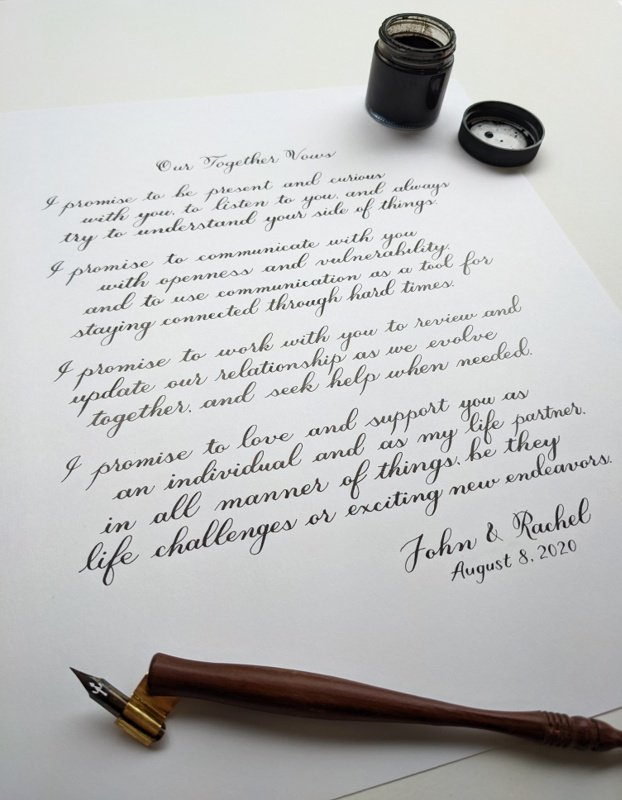 Our Together Vows
I promise to be present and curious
with you, to listen to you, and always
try to understand your side of things.
I promise to communicate with you
with openness and vulnerability,
and to use communication as a tool for
staying connected through hard times.
I promise to work with you to review and
update our relationship as we evolve
together, and seek help when needed.
I promise to love and support you as
an individual and as my life partner,
in all manner of things, be they
life challenges or exciting new endeavors.
John & Rachel
August 8, 2020